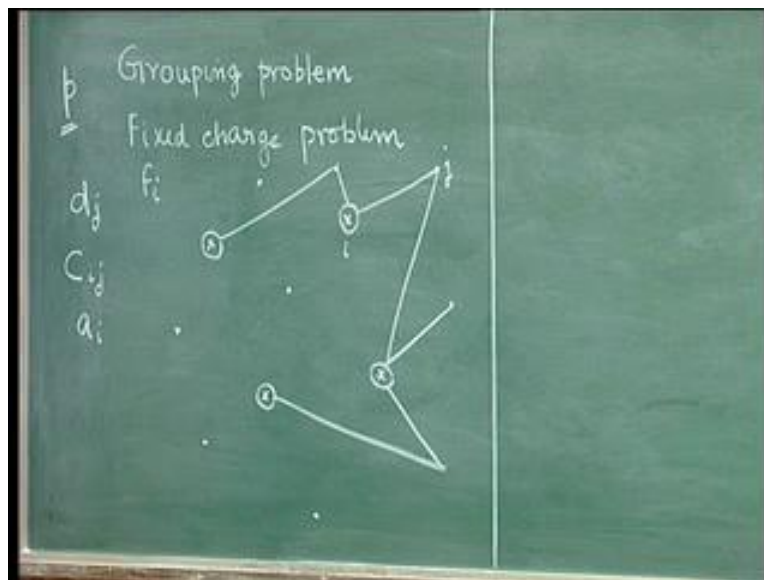 p
Grouping problem
Fixed charge problem
fi
dj
Cij
ai
j
i
x
x
x
x